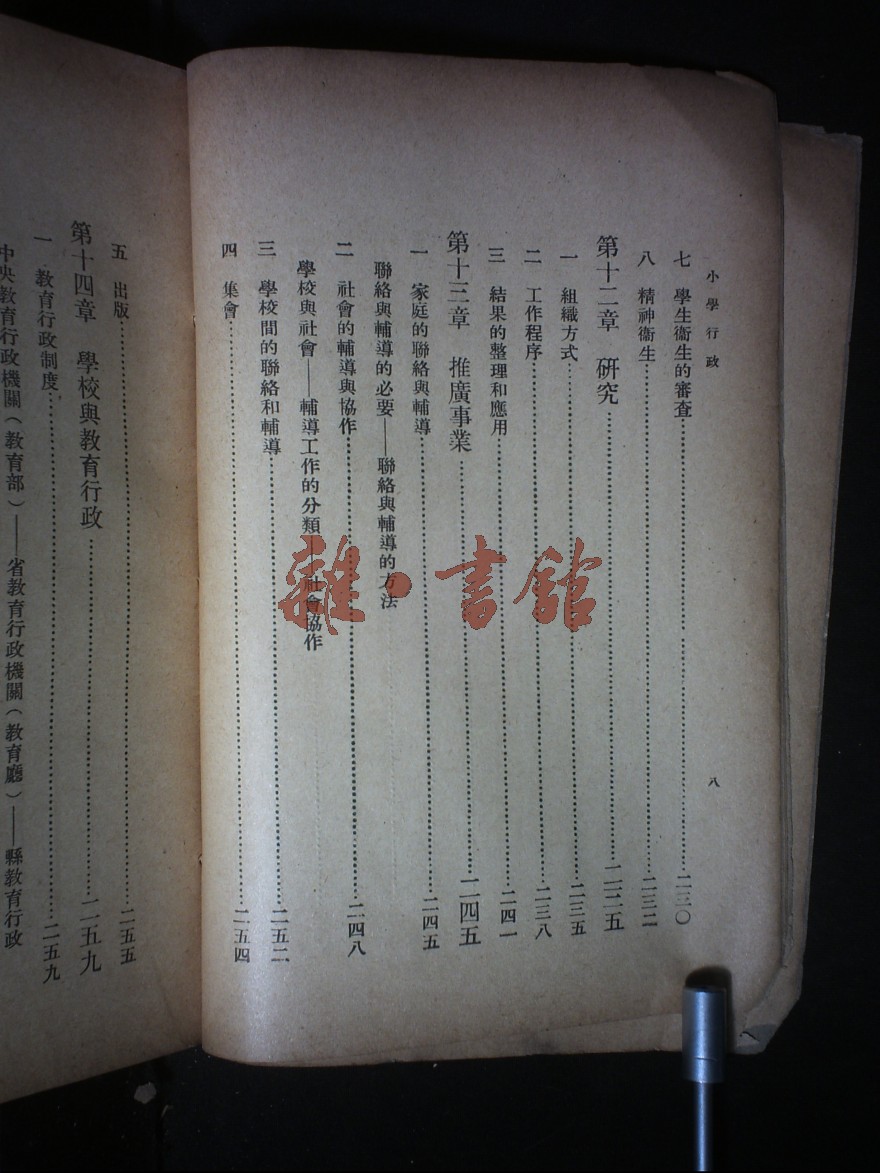 小學行政
八
七 學生衞生的審查……二三〇
八 精神衞生……二三二
第十二章 研究……二三五
一 組織方式……二三五
二 工作程序……二三八
三 結果的整理和應用……二四一
第十三章 推廣事業……二四五
一 家庭的聯絡與輔導……二四五
聯絡與輔導的必要——聯絡與輔導的方法
二 社會的輔導與協作……二四八
學校與社會——輔導工作的分類——社會協作
三 學校間的聯絡和輔導……二五二
四 集會……二五四
五 出版……二五五
第十四章 學校與教育行政……二五九
一 教育行政制度……二五九
中央教育行政機關（教育部）——省教育行政機關（教育廳）——縣教育行政
雜·書館